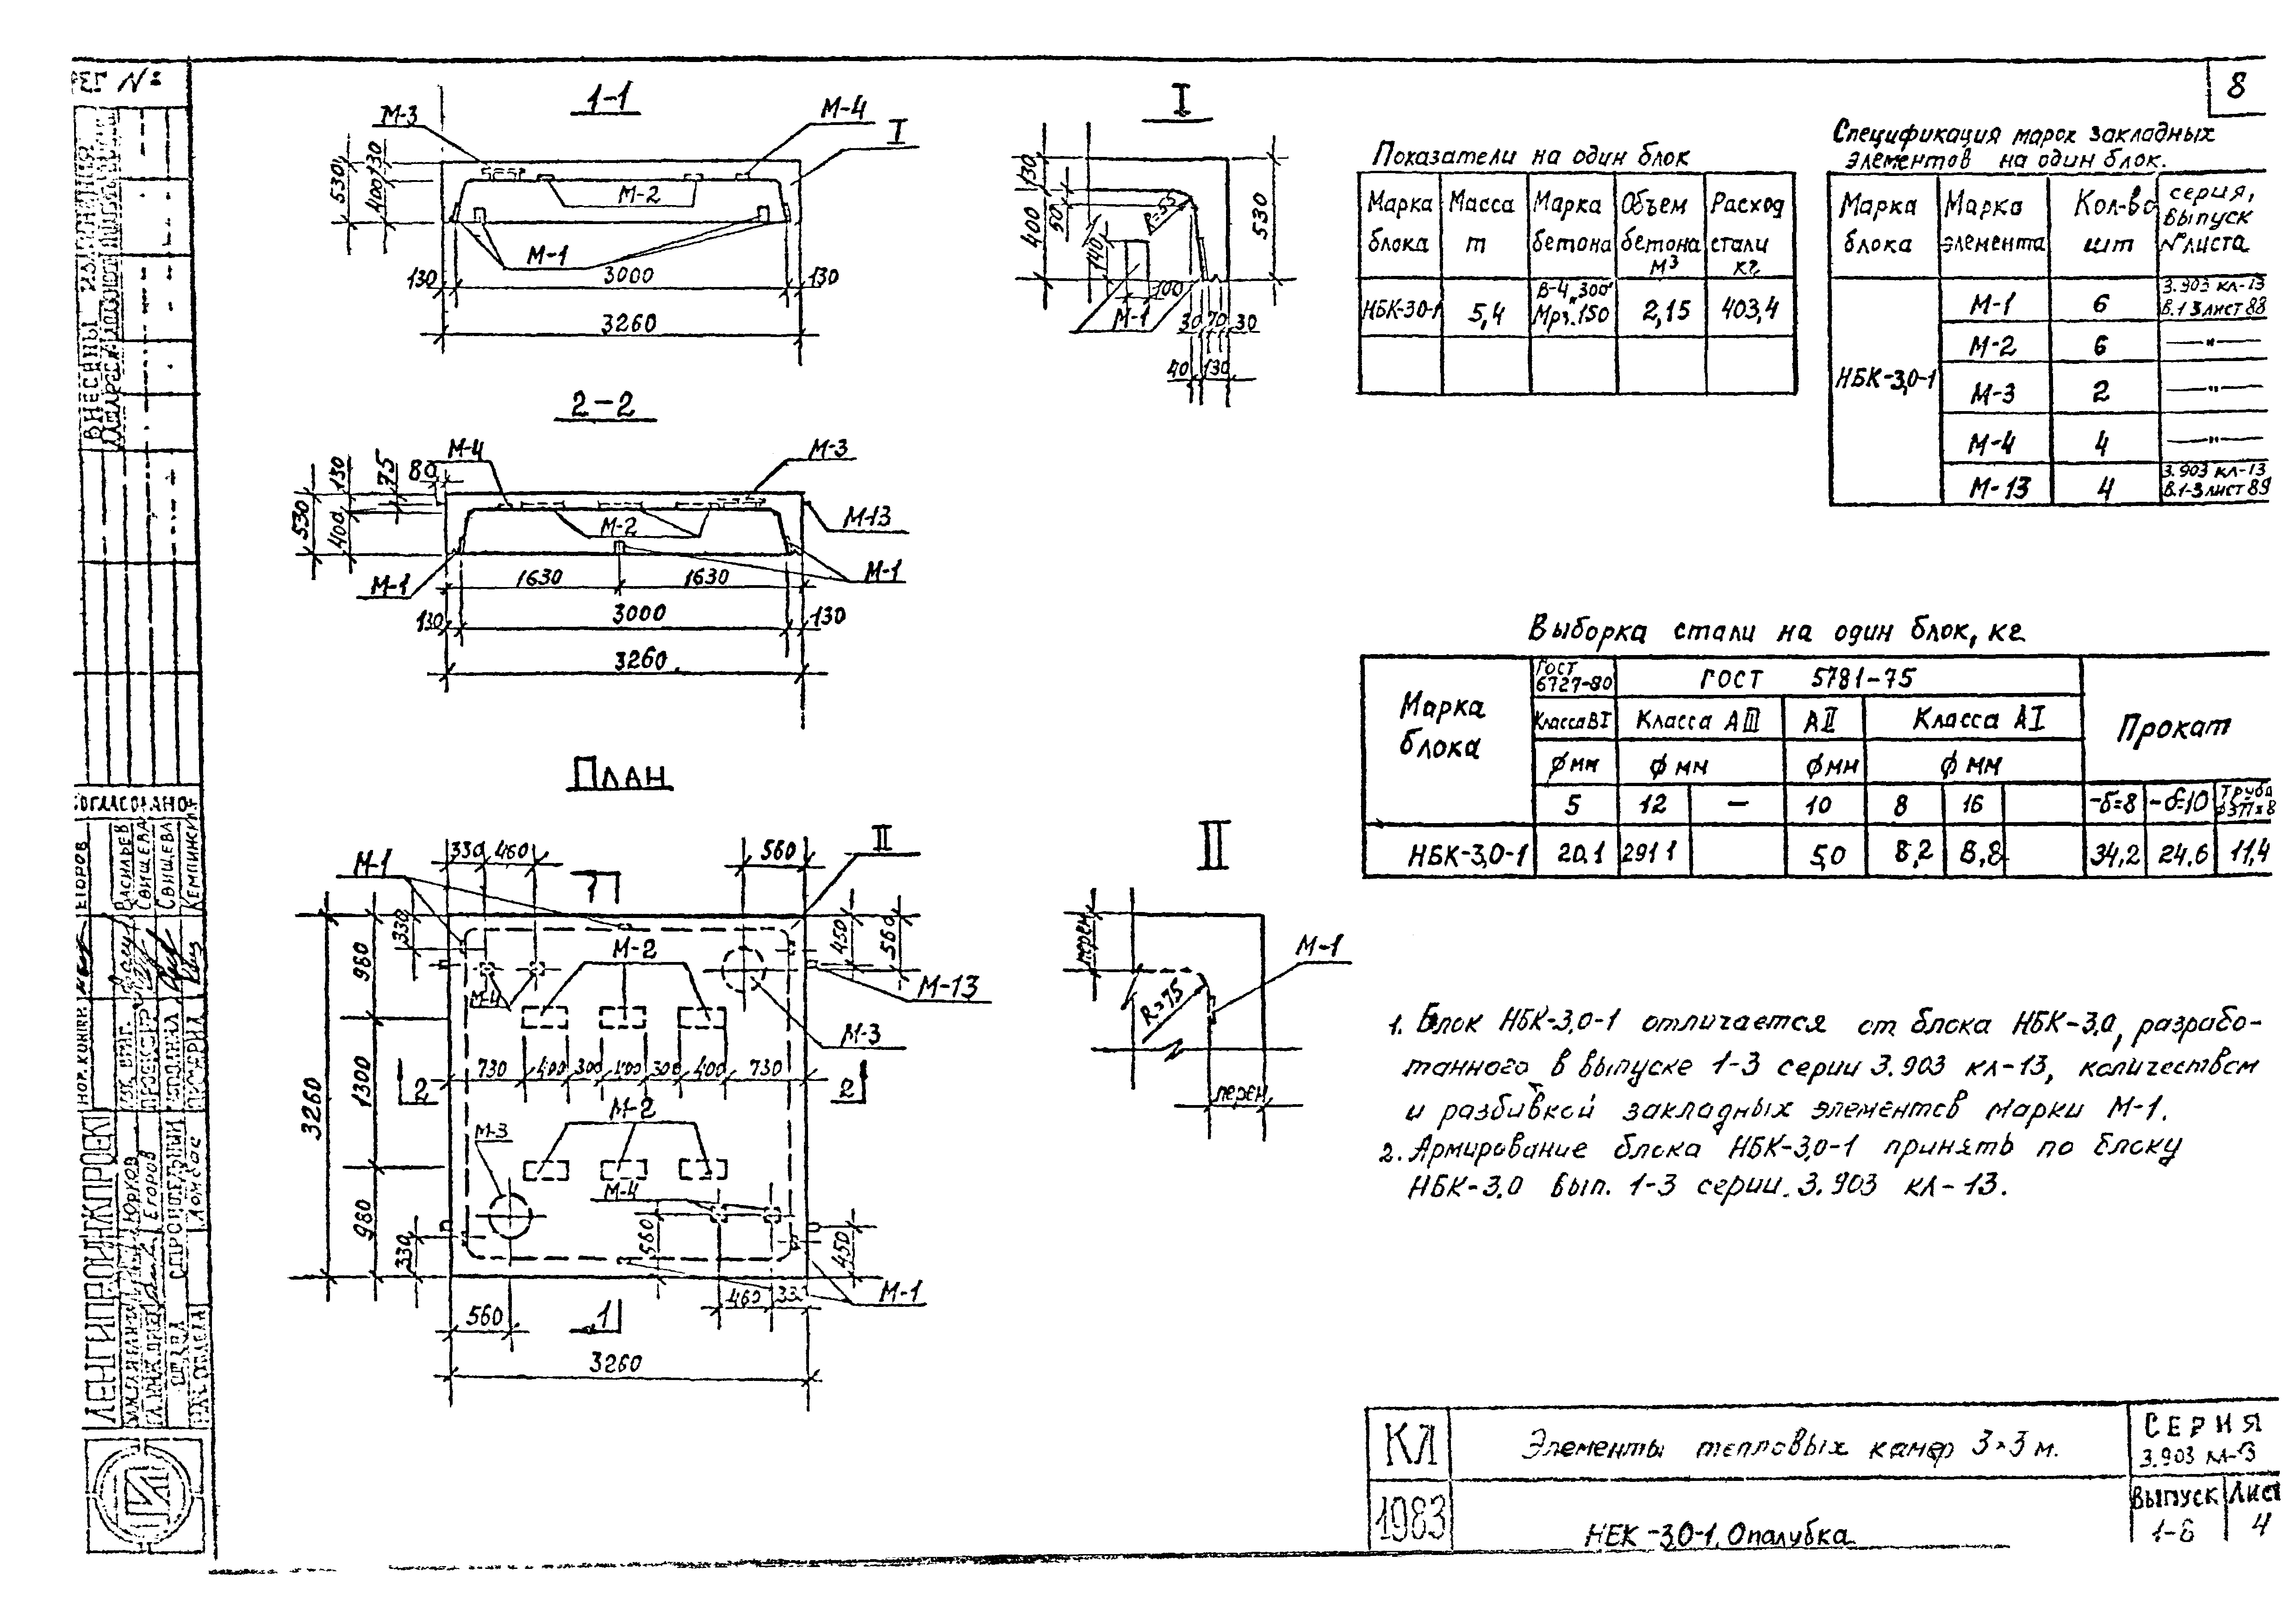 8
1-1
М-3
М-4
I
М-2
М-1
530
130
400
130
3000
130
3260
I
130
50
400
140
R=55
530
100
М-1
30 70 30
40 130
2-2
М-4
М-3
80
75
130
530
400
М-2
М-13
М-1
М-1
1630
1630
130
3000
130
3260
План
М-1
330 460
560
II
1
330
980
М-2
450
560
М-4
М-13
М-3
730 400 300 400 300 400 730
2
2
1300
3260
М-2
М-3
М-4
980
330
560
450
М-1
460
560
1
3260
II
перем
R=75
М-1
перем
Показатели на один блок
Марка блока
Масса т
Марка бетона
Объем бетона м³
Расход стали кг
НБК-3,0-1
5,4
В-4 „300"
Мрз.150
2,15
403,4
Спецификация марок закладных
элементов на один блок.
Марка блока
Марка элемента
Кол-во шт
серия, выпуск № листа
НБК-3,0-1
М-1 6 3.903 кл-13
в.1-3 лист 88
М-2 6 —"—
М-3 2 —"—
М-4 4 —"—
М-13 4 3.903 кл-13
в.1-3 лист 89
Выборка стали на один блок, кг
Марка блока
ГОСТ 6727-80
ГОСТ 5781-75
Прокат
Класса ВI
Класса АIII
АII
Класса АI
φ мм
φ мм
φ мм
φ мм
5 12 — 10 8 16 -δ=8 -δ=10 Труба φ377х8
НБК-3,0-1 20.1 291 1 5,0 8,2 8,8 34,2 24.6 11,4
1. Блок НБК-3,0-1 отличается от блока НБК-3,0, разрабо-
танного в выпуске 1-3 серии 3.903 кл-13, количеством
и разбивкой закладных элементов марки М-1.
2. Армирование блока НБК-3,0-1 принять по блоку
НБК-3.0 вып. 1-3 серии. 3.903 кл-13.
КЛ
1983
Элементы тепловых камер 3×3 м.
НБК-3.0-1. Опалубка
СЕРИЯ
3.903 кл-13
Выпуск
Лист
4
РЕГ №
ВНЕСЕНЫ ИЗМЕНЕНИЯ
СОГЛАСОВАНО
ЕГОРОВ
ВАСИЛЬЕВ
СВИЩЕВА
СВИЩЕВА
НОР. КОНТР.
ЮРКОВ
ЕГОРОВ
ЛЕНГИПРОИНЖПРОЕКТ
СТРОИТЕЛЬНЫЙ